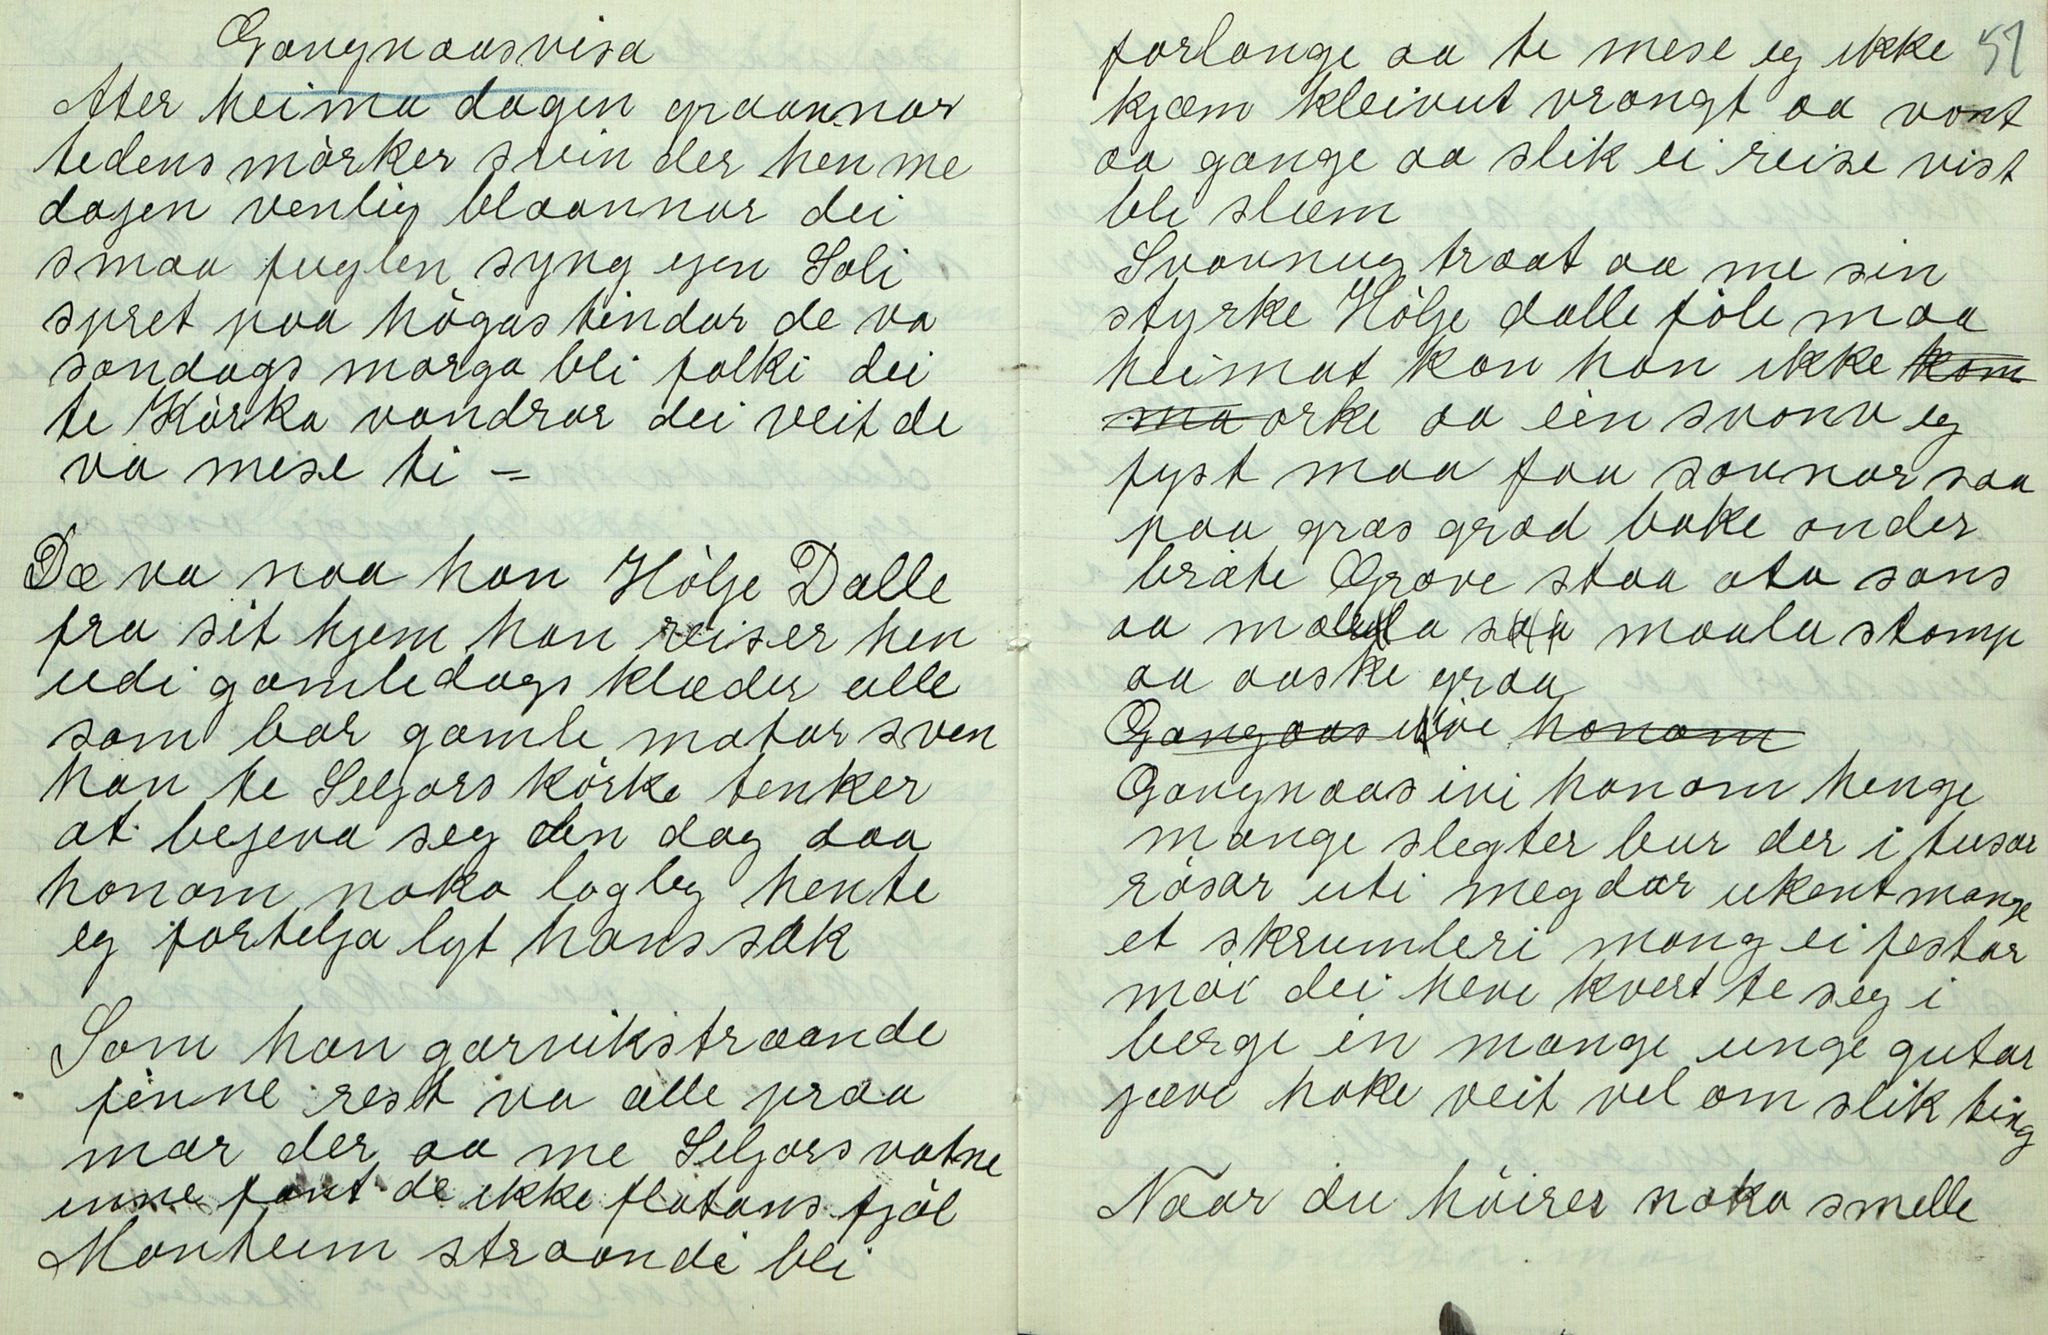 Gongnaasvisa
Ater heima dagen graannar
tedens mörker svin der hen me
dagen venlig blaannar dei
smaa fuglen syng igen Soli
spret paa högas tindar de va
sondags morga bli folki dei
te Körka vandrar dei veit de
va mese ti -
Dæ va naa han Hölje Dalle
fra sit hjem han reiser hen
udi gamledags klæder alle
som bar gamle matar sven
han te Seljors körke tenker
at begeva seg den dag daa
honom noko logleg hente
eg fortelja lyt hans sak
Som han garvikstraande
finne rest va alle praa
mar der aa me Seljorsvatne
inne fant de ikke flatans fjöl
Manheim straande bli
forlange aa te mese eg ikke 51
kjæm kleivut vrangt aa vont
aa gange aa slik ei reise vist
bli slæm
Svavneg traat aa me sin
styrke Hölje dalle föle maa
heimat kan han ikke kom
ma orke aa ein svonv eg
fyst maa faa savnar saa
paa gras grod bake onder
bratte Grove staa ata sans
aa maala stomp
aa aaske graa
Gangaas ive honom
Gangnaas ivi honom henge
mange slegter bur der i tusar
rösar uti megdar ukent mange
et skrumleri mang ei festar
möi dei heve kvert te seg i
berge in mange unge gutar
jæve hoke veit vel om slik ting
Naar du höirer noko smelle